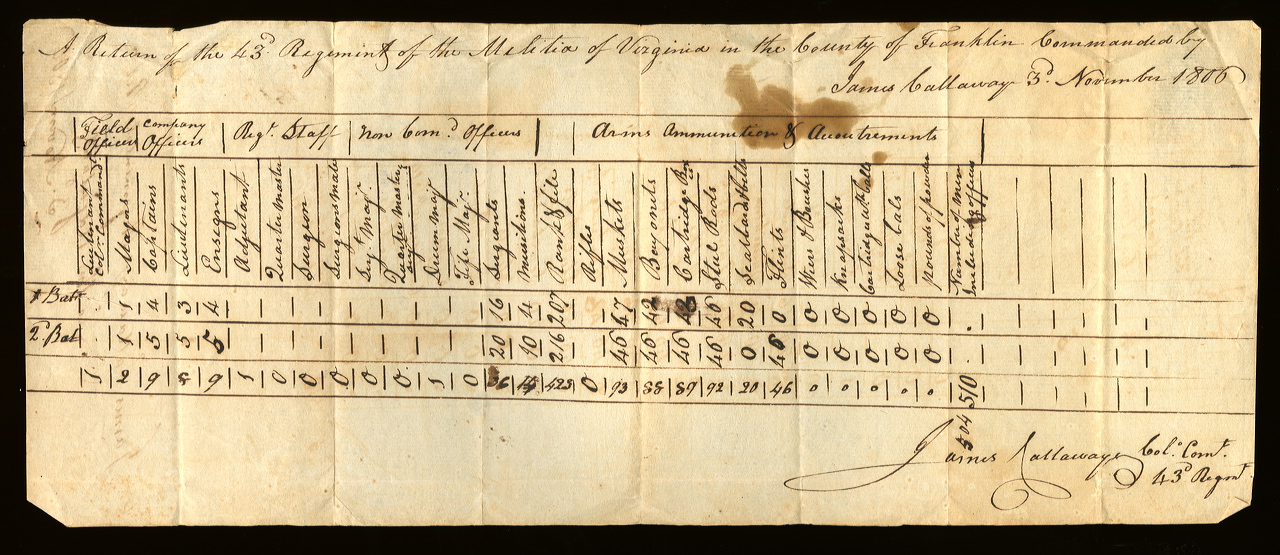 A Return of the 43d Regiment of the Melitia of Virginia in the County of Franklin Commanded by
James Callaway 3d November 1806
Field Officers Company Officers Regt Staff Non Comd Officers Arms Ammunition & Accoutrements
Lieutenant Colo Commandt Majors Captains Lieutenants Ensigns Adjutant Quartermaster Surgeon Surgeons mate Sugt Majr Quarter master Drum majr Fife Majr Surgents Musitions Rank & file Rifles Muskets Bayonets Cartridge Box Steal Rods Scabbard & belts Flints Wires & Brushes Knapsacks Cartridges with balls Loose bals pounds of powder Number of Men Including officers
1 Batn . 1 4 3 4 — — — — — — — — 16 4 207 47 42 43 46 20 0 0 0 0 0 0 .
2d Bat . 1 5 5 5 — — — — — — — — 20 10 216 — 46 46 46 46 0 46 0 0 0 0 0 .
1 2 9 8 9 1 0 0 0 0 0 1 0 36 14 423 0 93 88 89 92 20 46 0 0 0 0 0 510
504
James Callaway Colo Comt
43d Regmt